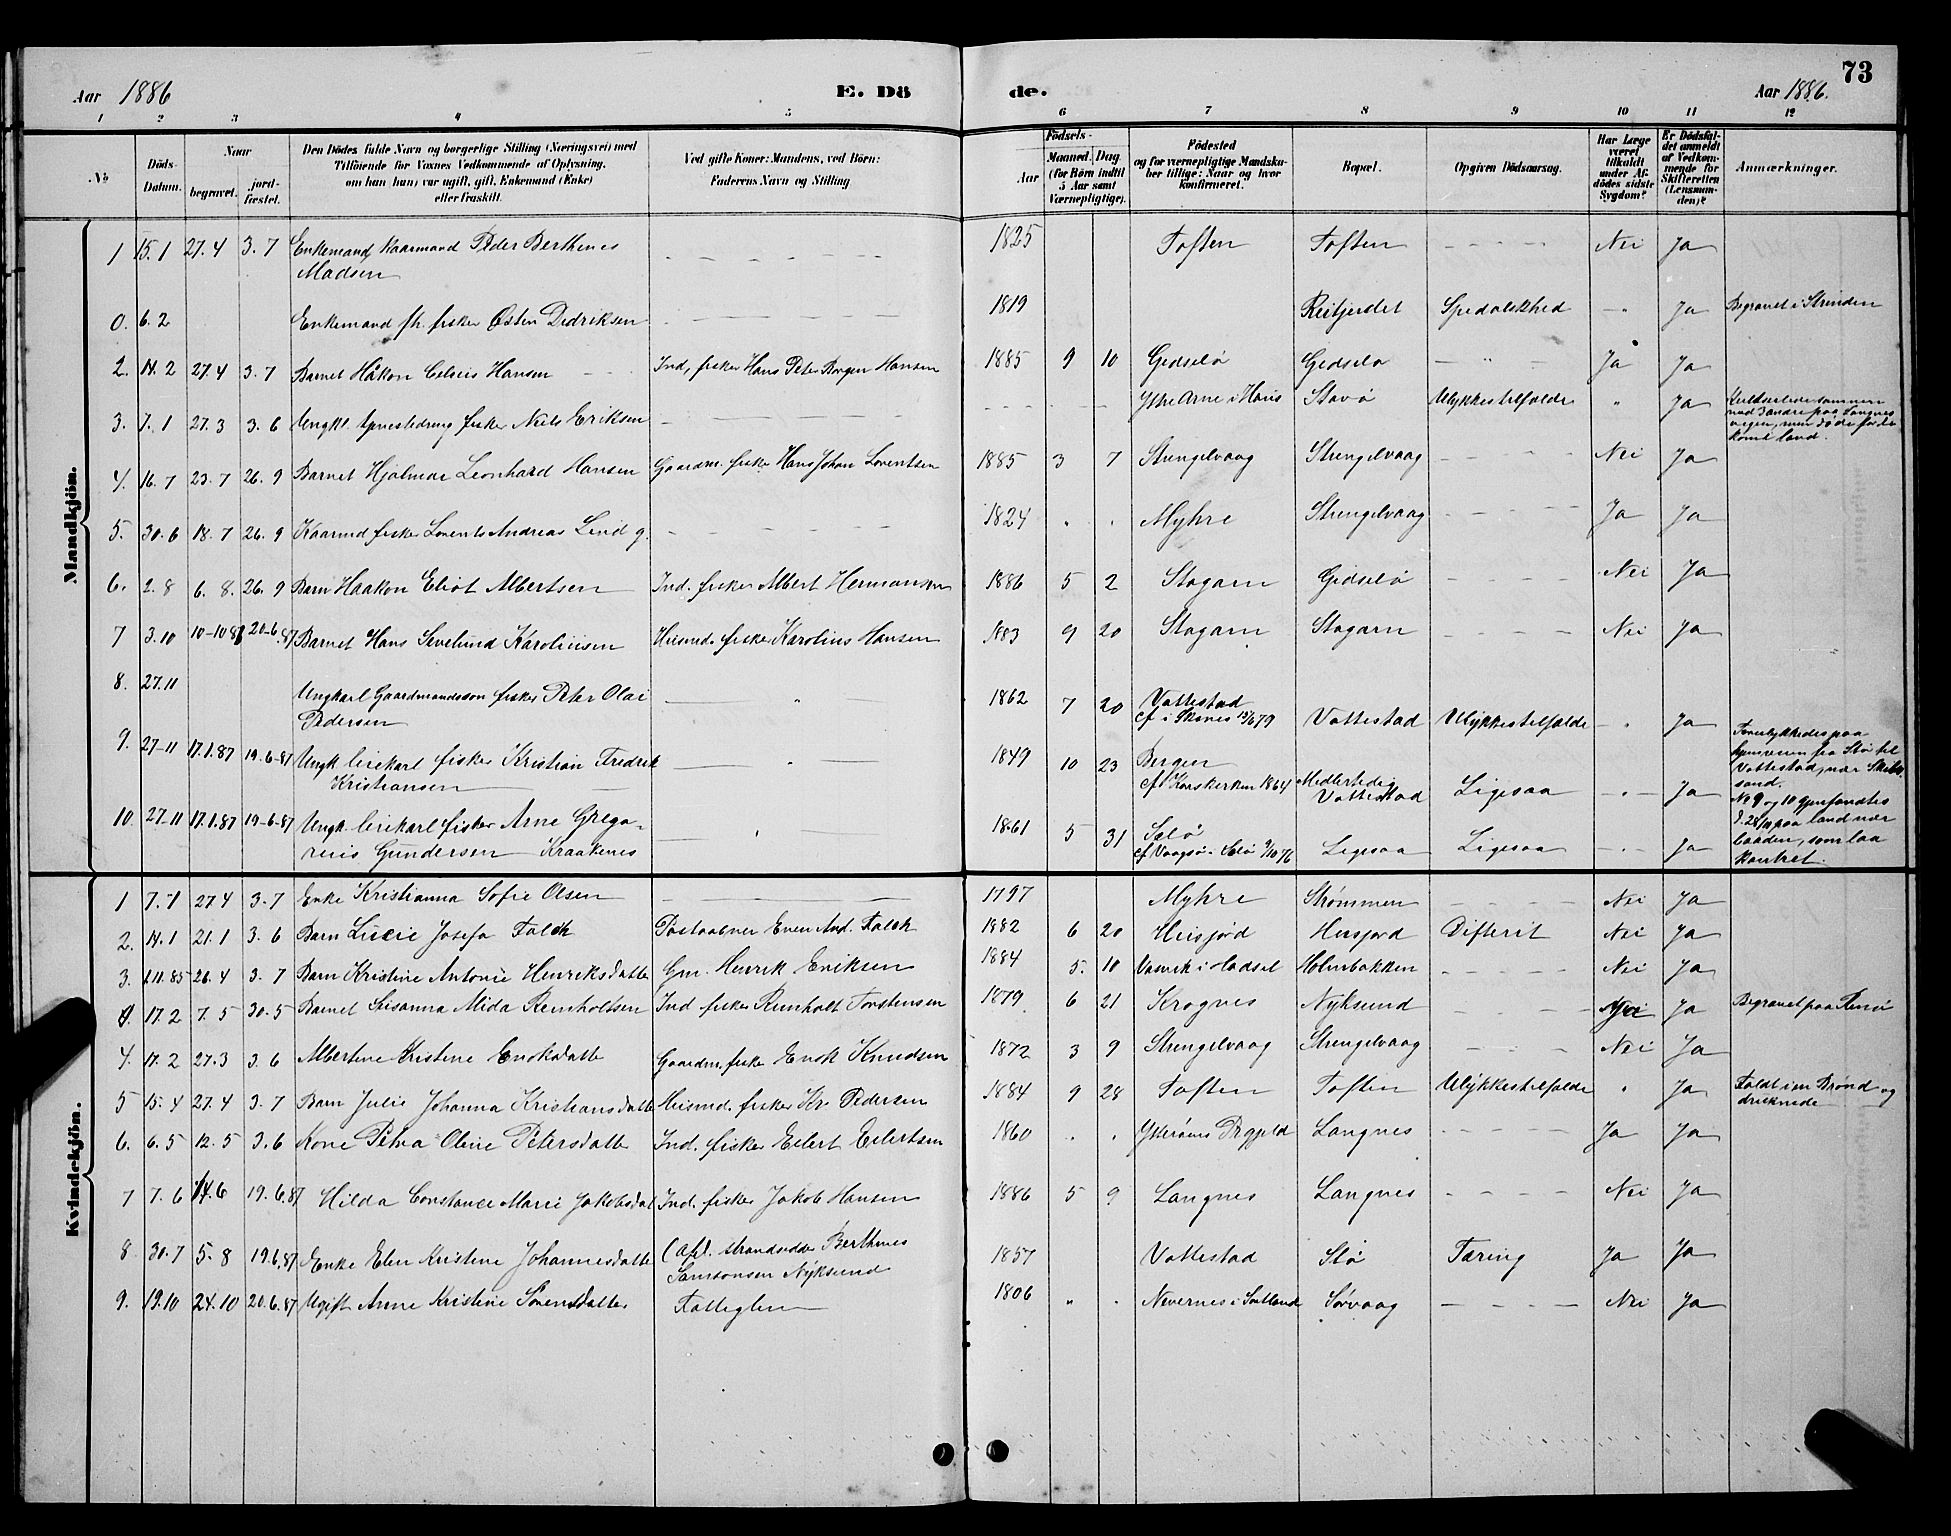 73
Aar 1886 E. Dö de. Aar 1886.
1 2 3 4 5 6 7 8 9 10 11 12
No
Döds-Datum.
Naar
begravet.
jord-fæstet.
Den Dödes fulde Navn og borgerlige Stilling (Næringsvei) med
Tilföiende for Voxnes Vedkommende af Oplysning,
om han (hun) var ugift, gift, Enkemand (Enke)
eller fraskilt.
Ved gifte Koner: Mandens, ved Börn:
Faderens Navn og Stilling
Födsels-
Aar Maaned. Dag
(for Börn indtil
5 Aar samt
Værnepligtige).
Födested
og for værnepligtige Mandska-
ber tillige: Naar og hvor
konfirmeret.
Bopæl.
Opgiven Dödsaarsag.
Har Læge
været
tilkaldt
under Af-
dödes sidste
Sygdom?
Er Dödsfal-
det anmeldt
af Vedkom-
mende for
Skifteretten
(Lensman-
den)?
Anmærkninger.
Mandkjön.
1 15.1 27.4 3.7 Enkemand Kaarmand Peder Berthines 1825 Toften Toften - - - - Nei Ja
Madsen
0. 6.2 Enkemand fh. fisker Østen Dedriksen 1819 Reitjerdet Spedalskhed - " Ja Begravet i Strinden
2. 14.2 27.4 3.7 Barnet Håkon Celius Hansen Ind, fisker Hans Peter Borgen Hansen 1885 9 10 Gedselø Gedselø - " - Ja Ja
3. 7.1 27.3 3.6 Ungkl. fisker Niels Eriksen Ytre Arne i Hous Stavø Ulykkestilfælde " Ja
med 3 andre paa Langnes
4. 16.7 23.7 26.9 Barnet Hjalmar Leonhard Hansen Gaardm. fisker Hans Johan Lorentsen 1885 3 7 Strengelvaag Strengelvaag - - - - Nei Ja
5. 30.6 18.7 26.9 Kaarmd fisker Lorents Andreas Lind g. 1824 " " Myhre Strengelvaag - - - - Ja Ja
6. 2.8 6.8. 26.9 Barn Haakon Eliot Albertsen Ind. fisker Albert Hermansen 1886 5 2 Stagarn Gidselø - - - - Nei Ja
7 3.10 10-10 8 20-6.87 Barnet Hans Sevelund Karoliusen Husmd. fisker Karolius Hansen 1883 9 20 Stagarn Stagarn - - - - Nei Ja
8. 27.11 Ungkarl Gaardmandssøn fisker Peter Olai 1862 7 20 Vottestad
Pedersen cf i Skånes 15/6 79 Vottestad Ulykkestilfælde - " Ja
9. 27-11 17.1.87 19-6-87 Ungk. leiekarl fisker Kristian Fredrik 1849 10 23 Bergen
Kristiansen cf Korskirken 1864 Midlertidig Vottestad Ligesaa - " - Ja
10. 27-11 17.1.87 19-6-87 Ungk. leiekarl fisker Arne Grego- 1861 5 31 Selø
rius Gundersen Kraakenes cf Vaagsø Selø 9/10 76 Ligesaa Ligesaa - " - Ja
Forulykkedes paa
hjemreisen fra Stø til
Vottestad, nær Skibs
sand.
No 9 og 10 gjenfandtes
d. 28/11 paa land nær
baaden, som laa
kantret.
Kvindekjön.
1 7.1 27.4 3.7 Enke Kristianna Sofie Olsen 1797 Myhre Strømmen - - - - Nei Ja
2. 14.1 21.1 3.6 Barn Lucie Josefa Falck Postaabner Even And. Falch 1882 6 20 Husjord Husjord Difterit Nei Ja
3. 1.11.85 26.4 3.7 Barn Kristine Antonie Henriksdatter Gm. Henrik Eriksen 1884 5. 10 Vasvik i Hadsel Holmbakken - - - - Nei Ja
0. 17.2 7.5 30.5 Barnet Susanna Alida Reinholtsen Ind. fisker Reinholt Torstensen 1879 6 21 Krognes Nyksund - - - - Nei Ja
4. 17.2 27.3 3.6 Albertine Kristine Enoksdatter Gaardm. fisker Enok Knudsen 1872 3 9 Strengelvaag Strengelvaag - - - Nei Ja
5 15.4 27.4 3.7 Barn Julie Johanna Kristiansdatter Husmd. fisker Kr. Pedersen 1884 9 28 Toften Toften Ulykkestilfælde " Ja Faldt i en Brønd og
druknede
6. 6.5 12.5 3.6 Kone Petra Oline Petersdatter Ind. fisker Eilert Eilertsen 1860 " " Langnes - - - - Ja Ja
7 7.6 14.6 19.6.87 Hilda Constance Marie Jakobsdat Ind. fisker Jakob Hansen 1886 5 9 Langnes Langnes - - - - Nei Ja
8. 30.7 5.8 19.6.87 Enke Elen Kristine Johannesdatter (Afd. Strandsidder Berthines 1857 Vottestad Stø Tæring Ja Ja
Samsonsen Nyksund
9. 19.10 24.10 20.6.87 Ugift Anne Kristine Sørensdatter Fattiglem 1806 " " Nevernes i Sortland Sørvaag - - - - Nei Ja